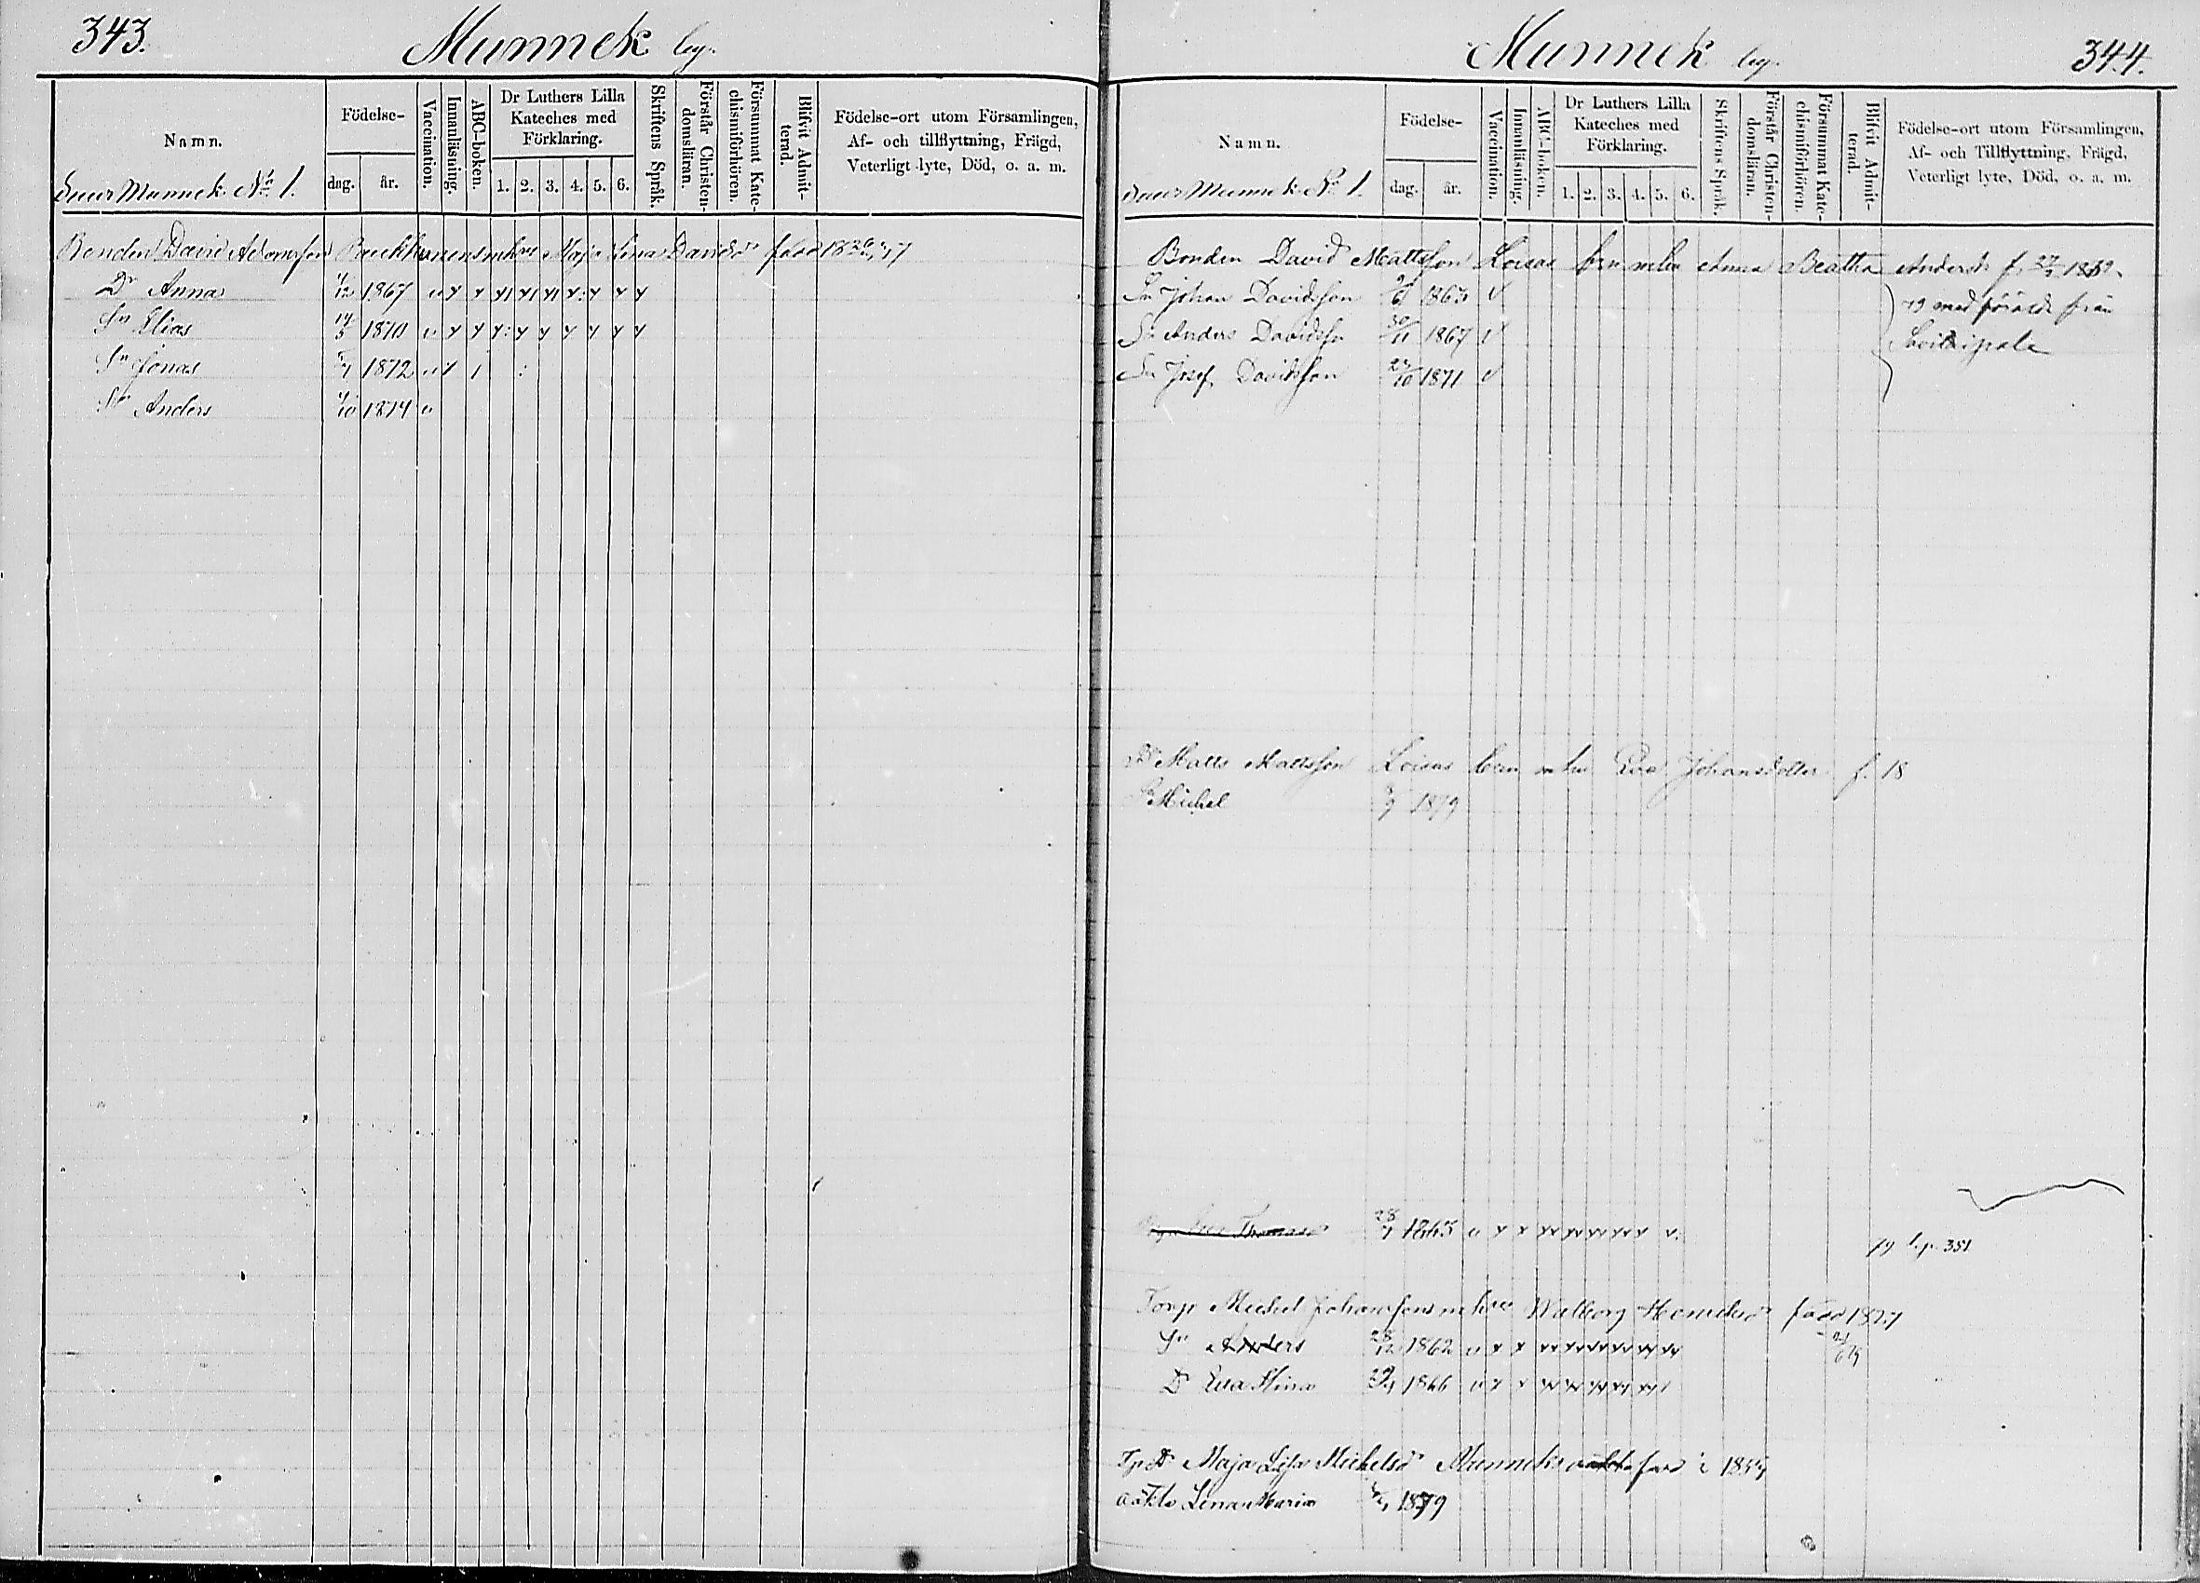 343.
Munnek by.
Namn.
Födelse-
dag. år.
Vaccination.
Innanläsning.
ABC-boken.
Dr Luthers Lilla Kateches med Förklaring.
1. 2. 3. 4. 5. 6.
Skriftens Språk.
Förstår Christen-domsläran.
Försummat Kate-chismiförhören.
Blifvit Admit-terad.
Födelse-ort utom Församlingen,
Af- och tillflyttning, Frägd,
Veterligt lyte, Död, o. a. m.
Suur Munnek No 1.
Bonden David Adamsson m hu Maja Lena Davidsdr född 1826
Dr Anna 1/12 1867 v
Sn Elias 14/5 1870 v
Sn Jonas 1872 v
Sn Anders 4/10 1874 v
Munnek by.
344.
Namn.
Födelse-
dag. år.
Vaccination.
Innanläsning.
ABC-boken.
Dr Luthers Lilla Kateches med Förklaring.
1. 2. 3. 4. 5. 6.
Skriftens Språk.
Förstår Christen-domsläran.
Försummat Kate-chismiförhören.
Blifvit Admit-terad.
Födelse-ort utom Församlingen,
Af- och Tillflyttning, Frägd,
Veterligt lyte, Död, o. a. m.
Suur Munnek No 1.
Bonden David Mattsson Loisas Anna Beatha Andersdr f.
Sn Johan Davidsson 1865 v
79 med föräldr från
Sn Anders Davidsson 30/11 1867 v
Savitaipale
Sn Josef Davidsson 1871 v
Matts Mattsson Loisas Eva Johansdotter f. 18
Sn Michel 1879
Thomasdr 28/7 1865 v
79 l.p. 351
Torp Michel Johanssons m hu Walborg Henriksdr född 1827
Sn Anders 28/12 1862 v
D Eva Stina 1866 v
Maja Lisa Michelsdr Munnek född 1855
Lena Maria 1879